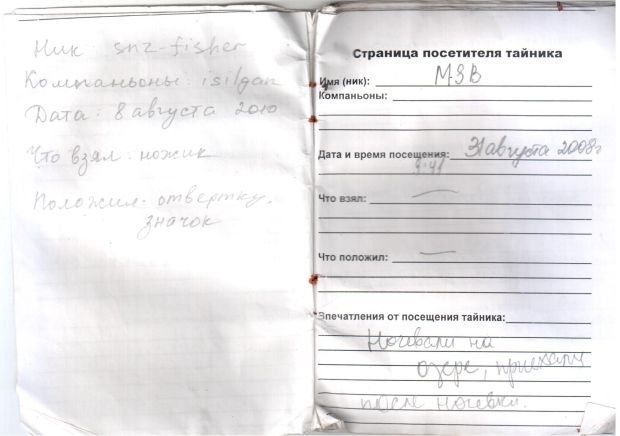 Ник: snz-fisher
Компаньоны: isilgan
Дата: 8 августа 2010
Что взял: ножик
Положил: отвертку,
значок
Страница посетителя тайника
Имя (ник): MSB
Компаньоны:
Дата и время посещения: 31 августа 2008г
9:41
Что взял: —
Что положил: —
Впечатления от посещения тайника:
Ночевали на
озере, приехали
после ночевки.